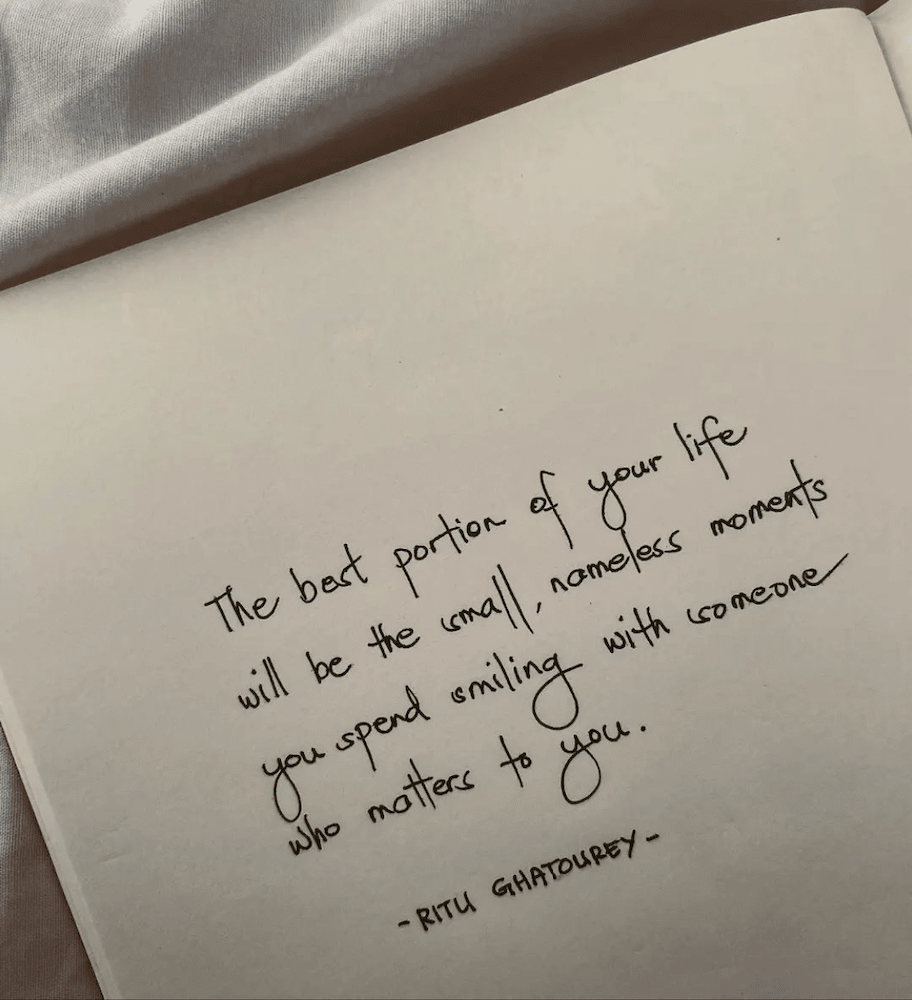 The best portion of your life
will be the small, nameless moments
you spend smiling with someone
who matters to you.
-RITU GHATOUREY-